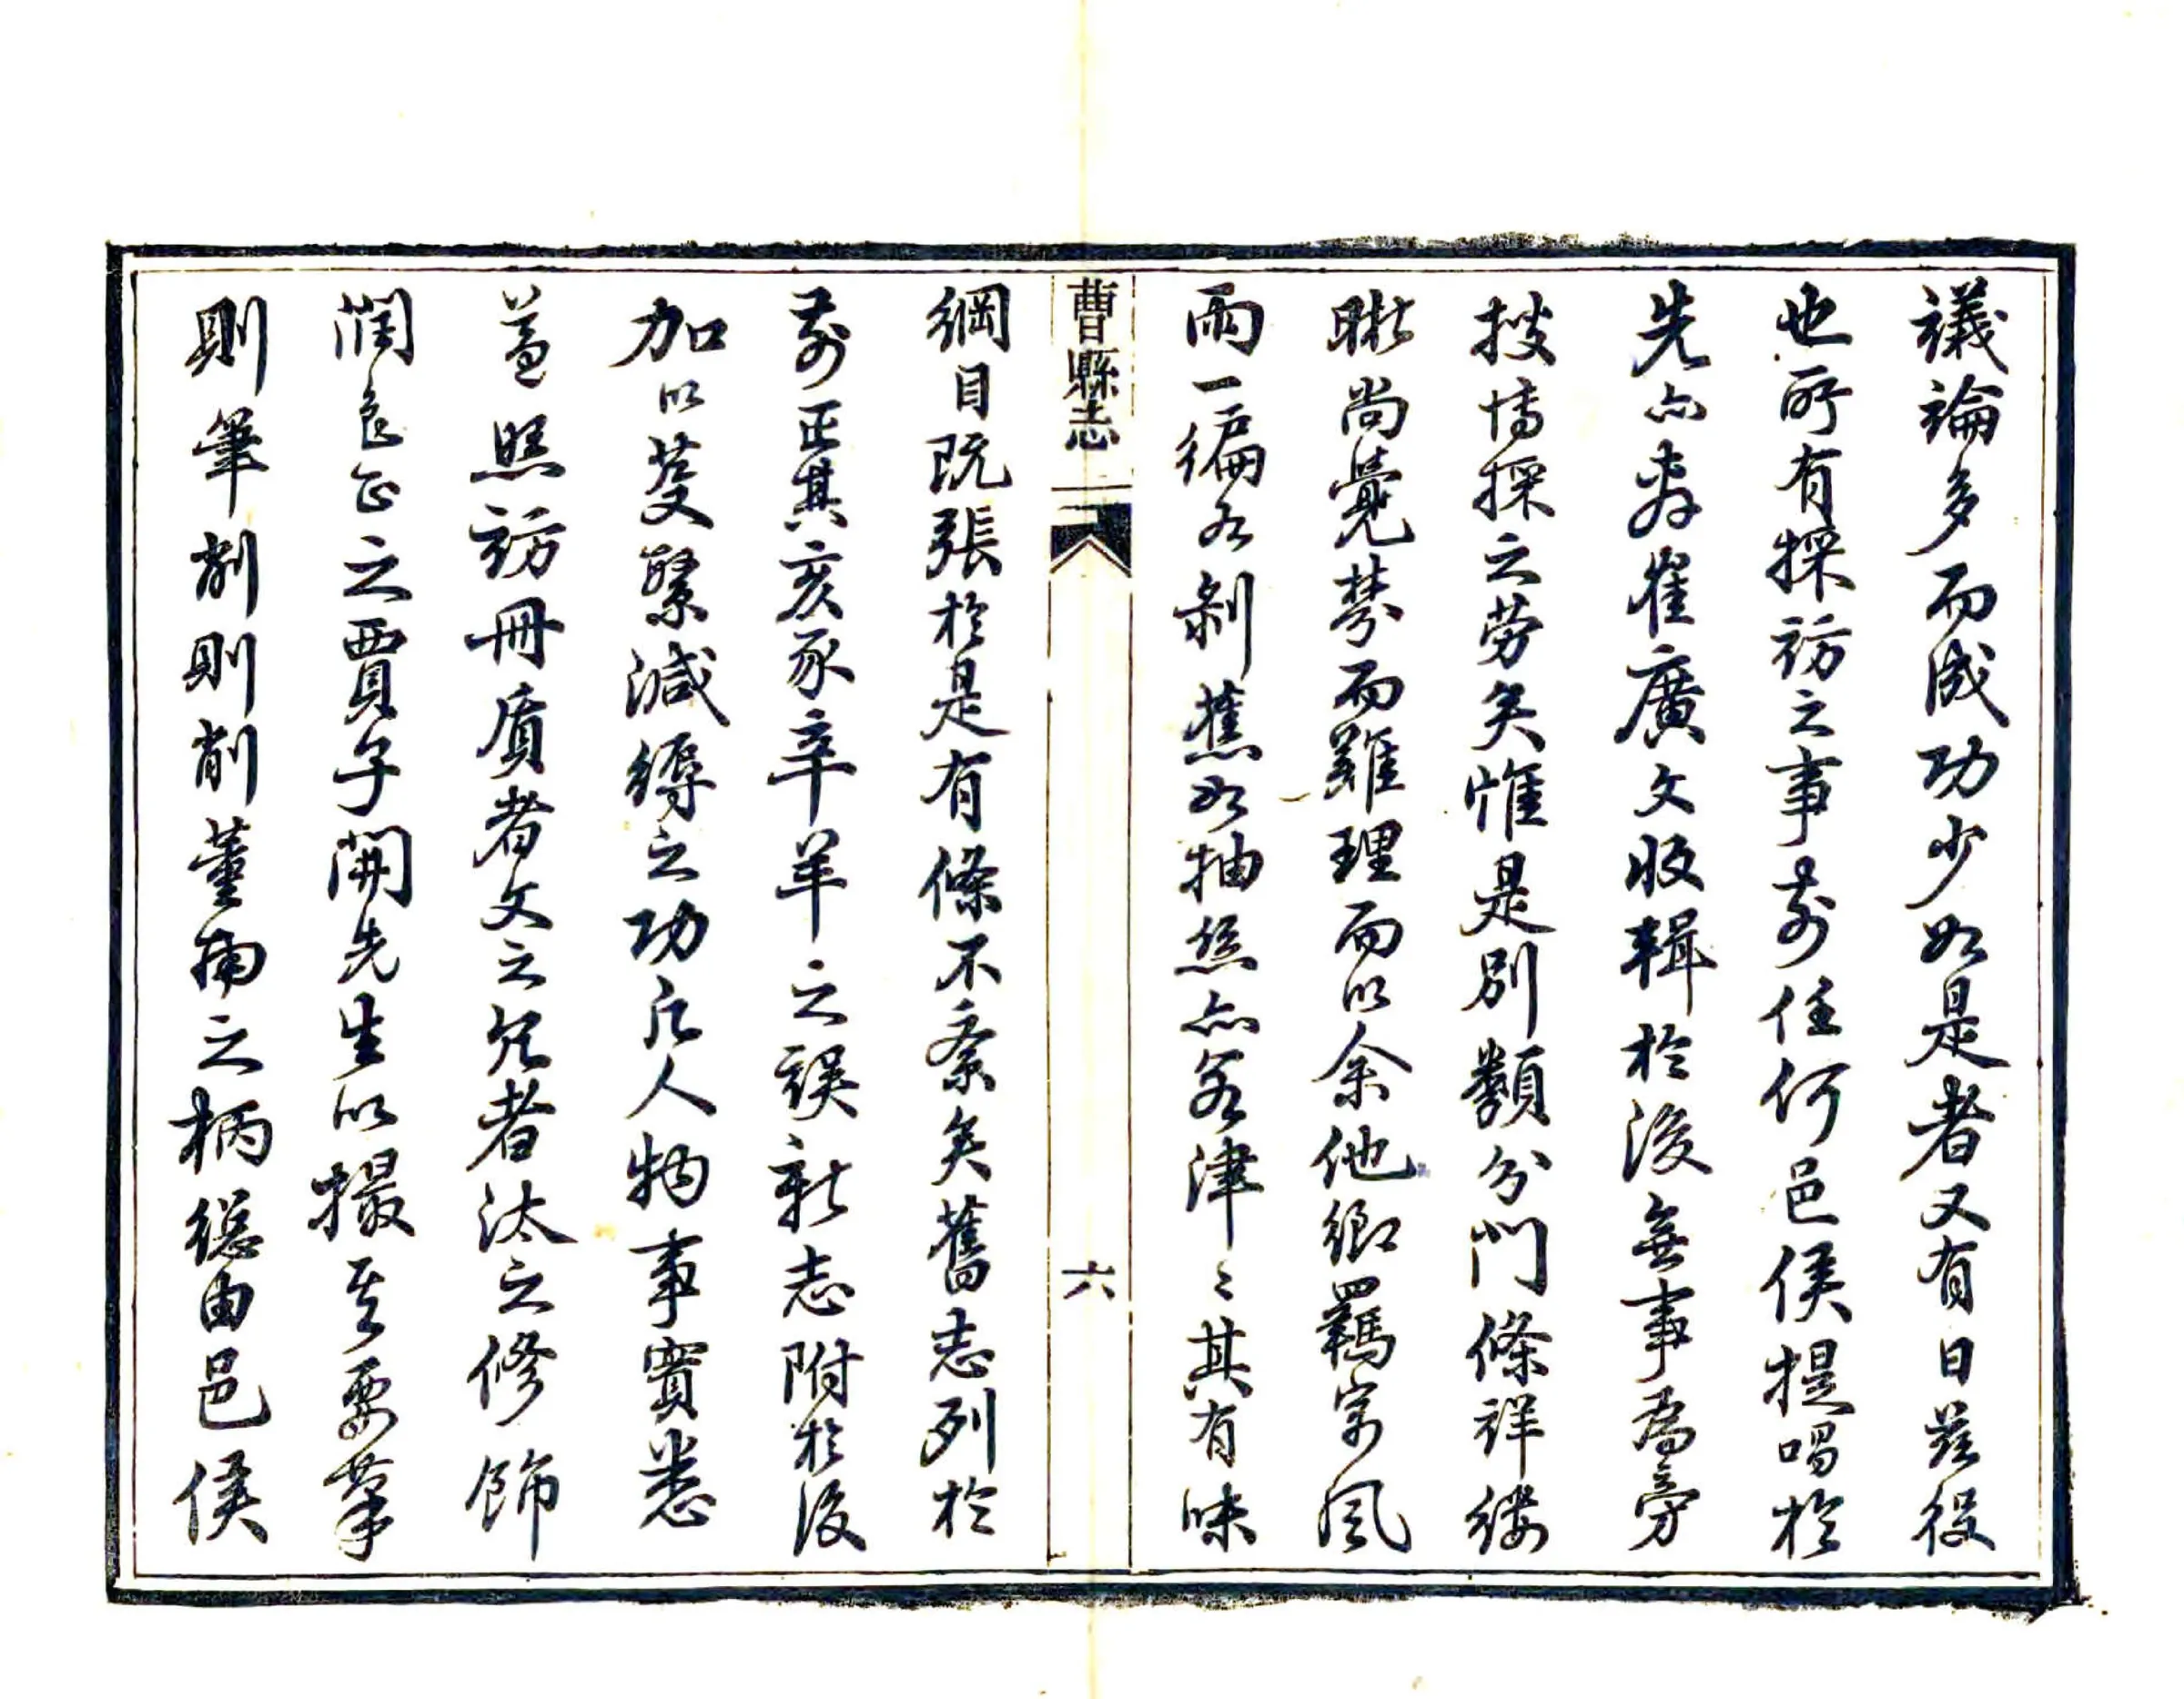 議論多而成功少如是者又有日茲役
也所有採訪之事前任何邑侯提唱於
先亦崔廣文收輯於後無事為旁
搜博採之勞矣惟是別類分門條祥縷
晰尚覺棼而難理而以余他鄉羈客風
雨一編如剝蕉如抽絲亦若津〻其有味
曹縣志
六
綱目既張於是有條不紊矣舊志列於
前正其亥豕辛羊之誤新志附於後
加以芟繁減縟之功凡人物事實悉
遵照訪冊質者文之冗者汰之修飾
潤色正之賈子開先生以撮其要筆
則筆削則削董南之柄總由邑侯